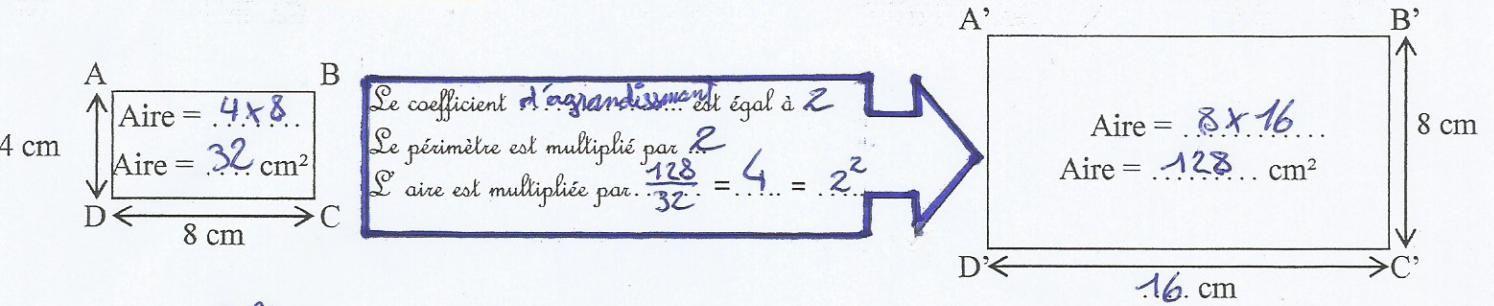 A B
4 cm
Aire = 4 x 8
Aire = 32 cm²
D C
8 cm
Le coefficient d'agrandissment est égal à 2
Le périmètre est multiplié par 2
L' aire est multipliée par 128/32 = 4 = 2²
A' B'
Aire = 8 x 16
Aire = 128 cm²
8 cm
D' C'
16 cm